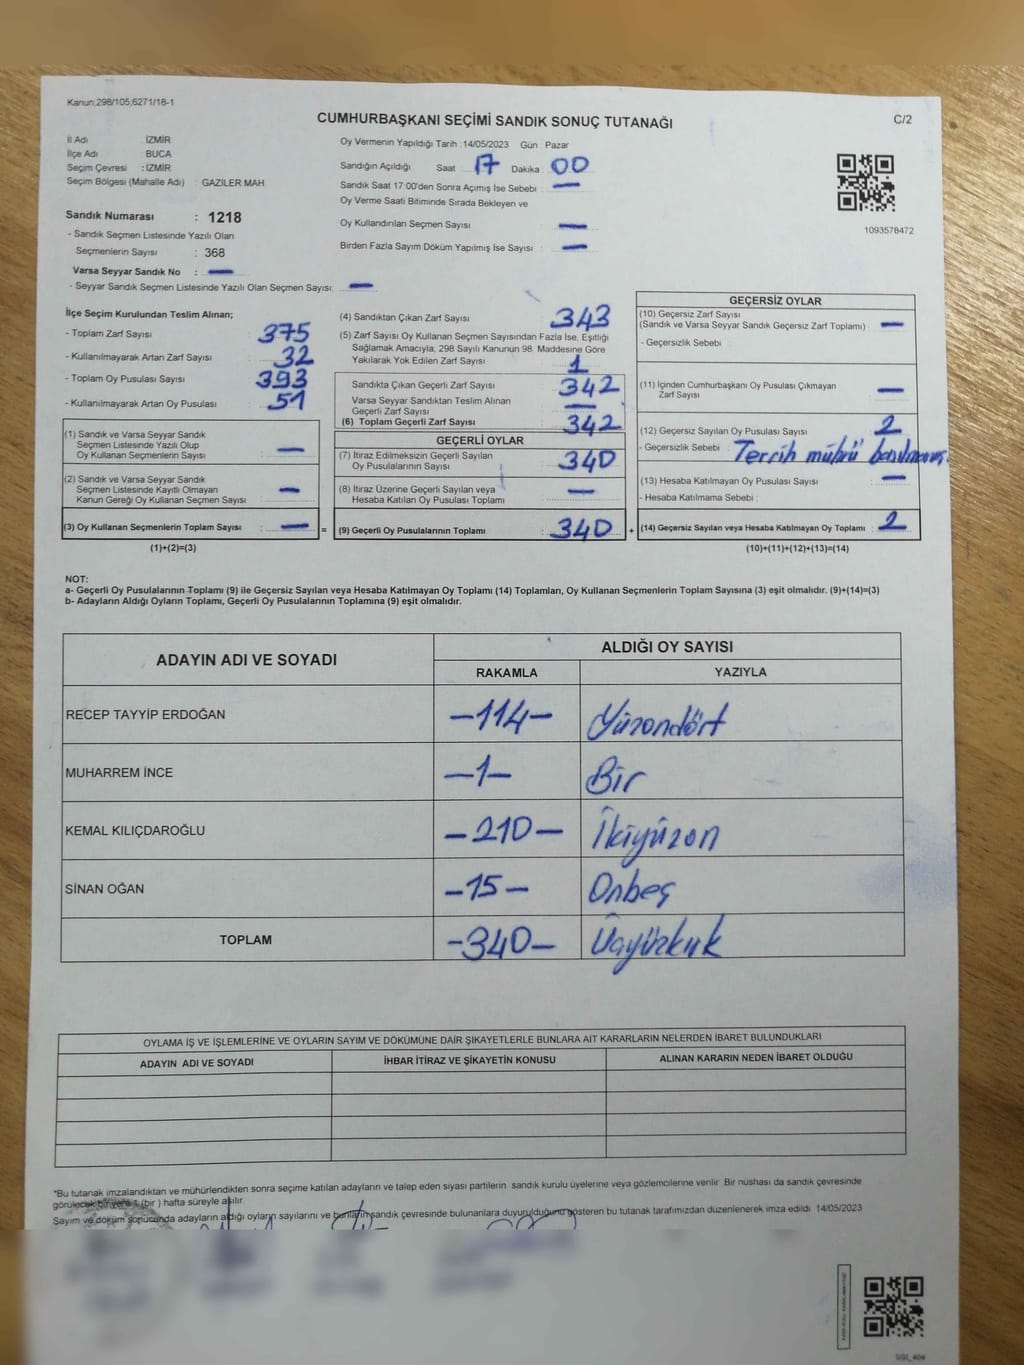 Kanun:298/105;6271/18-1
CUMHURBAŞKANI SEÇİMİ SANDIK SONUÇ TUTANAĞI
C/2
İl Adı İZMİR
İlçe Adı BUCA
Seçim Çevresi : İZMİR
Seçim Bölgesi (Mahalle Adı) GAZİLER MAH
Sandık Numarası : 1218
- Sandık Seçmen Listesinde Yazılı Olan
Seçmenlerin Sayısı : 368
Varsa Seyyar Sandık No : —
- Seyyar Sandık Seçmen Listesinde Yazılı Olan Seçmen Sayısı: —
Oy Vermenin Yapıldığı Tarih : 14/05/2023 Gün Pazar
Sandığın Açıldığı Saat 17 Dakika : 00
Sandık Saat 17:00'den Sonra Açımış İse Sebebi : —
Oy Verme Saati Bitiminde Sırada Bekleyen ve
Oy Kullandırılan Seçmen Sayısı : —
Birden Fazla Sayım Döküm Yapılmış İse Sayısı : —
1093578472
İlçe Seçim Kurulundan Teslim Alınan;
- Toplam Zarf Sayısı : 375
- Kullanılmayarak Artan Zarf Sayısı : 32
- Toplam Oy Pusulası Sayısı : 393
- Kullanılmayarak Artan Oy Pusulası : 51
(1) Sandık ve Varsa Seyyar Sandık
Seçmen Listesinde Yazılı Olup
Oy Kullanan Seçmenlerin Sayısı : —
(2) Sandık ve Varsa Seyyar Sandık
Seçmen Listesinde Kayıtlı Olmayan
Kanun Gereği Oy Kullanan Seçmen Sayısı : —
(3) Oy Kullanan Seçmenlerin Toplam Sayısı : — =
(1)+(2)=(3)
(4) Sandıktan Çıkan Zarf Sayısı : 343
(5) Zarf Sayısı Oy Kullanan Seçmen Sayısından Fazla İse, Eşitliği
Sağlamak Amacıyla, 298 Sayılı Kanunun 98. Maddesine Göre
Yakılarak Yok Edilen Zarf Sayısı : 1
Sandıkta Çıkan Geçerli Zarf Sayısı : 342
Varsa Seyyar Sandıktan Teslim Alınan
Geçerli Zarf Sayısı : —
(6) Toplam Geçerli Zarf Sayısı : 342
GEÇERLİ OYLAR
(7) İtiraz Edilmeksizin Geçerli Sayılan
Oy Pusulalarının Sayısı : 340
(8) İtiraz Üzerine Geçerli Sayılan veya
Hesaba Katılan Oy Pusulası Toplamı : —
(9) Geçerli Oy Pusulalarının Toplamı : 340 +
GEÇERSİZ OYLAR
(10) Geçersiz Zarf Sayısı
(Sandık ve Varsa Seyyar Sandık Geçersiz Zarf Toplamı) : —
- Geçersizlik Sebebi :
(11) İçinden Cumhurbaşkanı Oy Pusulası Çıkmayan
Zarf Sayısı : —
(12) Geçersiz Sayılan Oy Pusulası Sayısı : 2
- Geçersizlik Sebebi : Tercih mührü basılmamış
(13) Hesaba Katılmayan Oy Pusulası Sayısı : —
- Hesaba Katılmama Sebebi :
(14) Geçersiz Sayılan veya Hesaba Katılmayan Oy Toplamı : 2
(10)+(11)+(12)+(13)=(14)
NOT:
a- Geçerli Oy Pusulalarının Toplamı (9) ile Geçersiz Sayılan veya Hesaba Katılmayan Oy Toplamı (14) Toplamları, Oy Kullanan Seçmenlerin Toplam Sayısına (3) eşit olmalıdır. (9)+(14)=(3)
b- Adayların Aldığı Oyların Toplamı, Geçerli Oy Pusulalarının Toplamına (9) eşit olmalıdır.
ADAYIN ADI VE SOYADI
ALDIĞI OY SAYISI
RAKAMLA YAZIYLA
RECEP TAYYİP ERDOĞAN —114— Yüzondört
MUHARREM İNCE —1— Bir
KEMAL KILIÇDAROĞLU —210— İkiyüzon
SİNAN OĞAN —15— Onbeş
TOPLAM —340— Üçyüzkırk
OYLAMA İŞ VE İŞLEMLERİNE VE OYLARIN SAYIM VE DÖKÜMÜNE DAİR ŞİKAYETLERLE BUNLARA AİT KARARLARIN NELERDEN İBARET BULUNDUKLARI
ADAYIN ADI VE SOYADI İHBAR İTİRAZ VE ŞİKAYETİN KONUSU ALINAN KARARIN NEDEN İBARET OLDUĞU
*Bu tutanak imzalandıktan ve mühürlendikten sonra seçime katılan adayların ve talep eden siyasi partilerin sandık kurulu üyelerine veya gözlemcilerine verilir .Bir nüshası da sandık çevresinde
görülecek bir yere 1 (bir ) hafta süreyle asılır.
Sayım ve döküm sonucunda adayların aldığı oyların sayılarını ve bunların sandık çevresinde bulunanlara duyurulduğunu gösteren bu tutanak tarafımızdan düzenlenerek imza edildi 14/05/2023